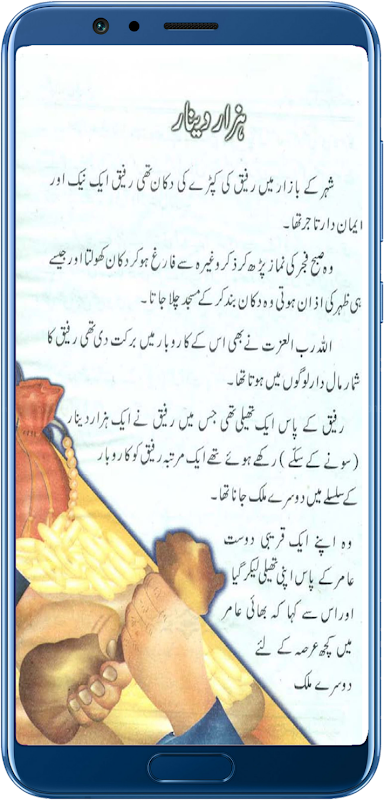 ہزار دینار
شہر کے بازار میں رفیق کی کپڑے کی دکان تھی رفیق ایک نیک اور
ایمان دار تاجر تھا۔
وہ صبح فجر کی نماز پڑھ کر ذکر وغیرہ سے فارغ ہو کر دکان کھولتا اور جیسے
ہی ظہر کی اذان ہوتی وہ دکان بند کر کے مسجد چلا جاتا۔
اللہ رب العزت نے بھی اس کے کاروبار میں برکت دی تھی رفیق کا
شمار مال دار لوگوں میں ہوتا تھا۔
رفیق کے پاس ایک تھیلی تھی جس میں رفیق نے ایک ہزار دینار
(سونے کے سکّے) رکھے ہوئے تھے ایک مرتبہ رفیق کو کاروبار
کے سلسلے میں دوسرے ملک جانا تھا۔
وہ اپنے ایک قریبی دوست
عامر کے پاس اپنی تھیلی لیکر گیا
اور اس سے کہا کہ بھائی عامر
میں کچھ عرصہ کے لئے
دوسرے ملک